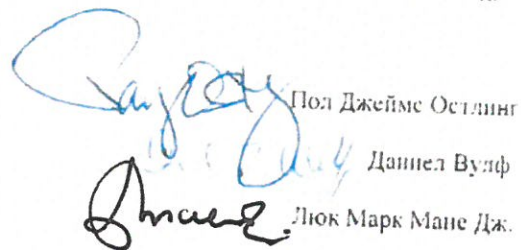 Пол Джеймс Остлинг
Даниел Вулф
Люк Марк Мане Дж.